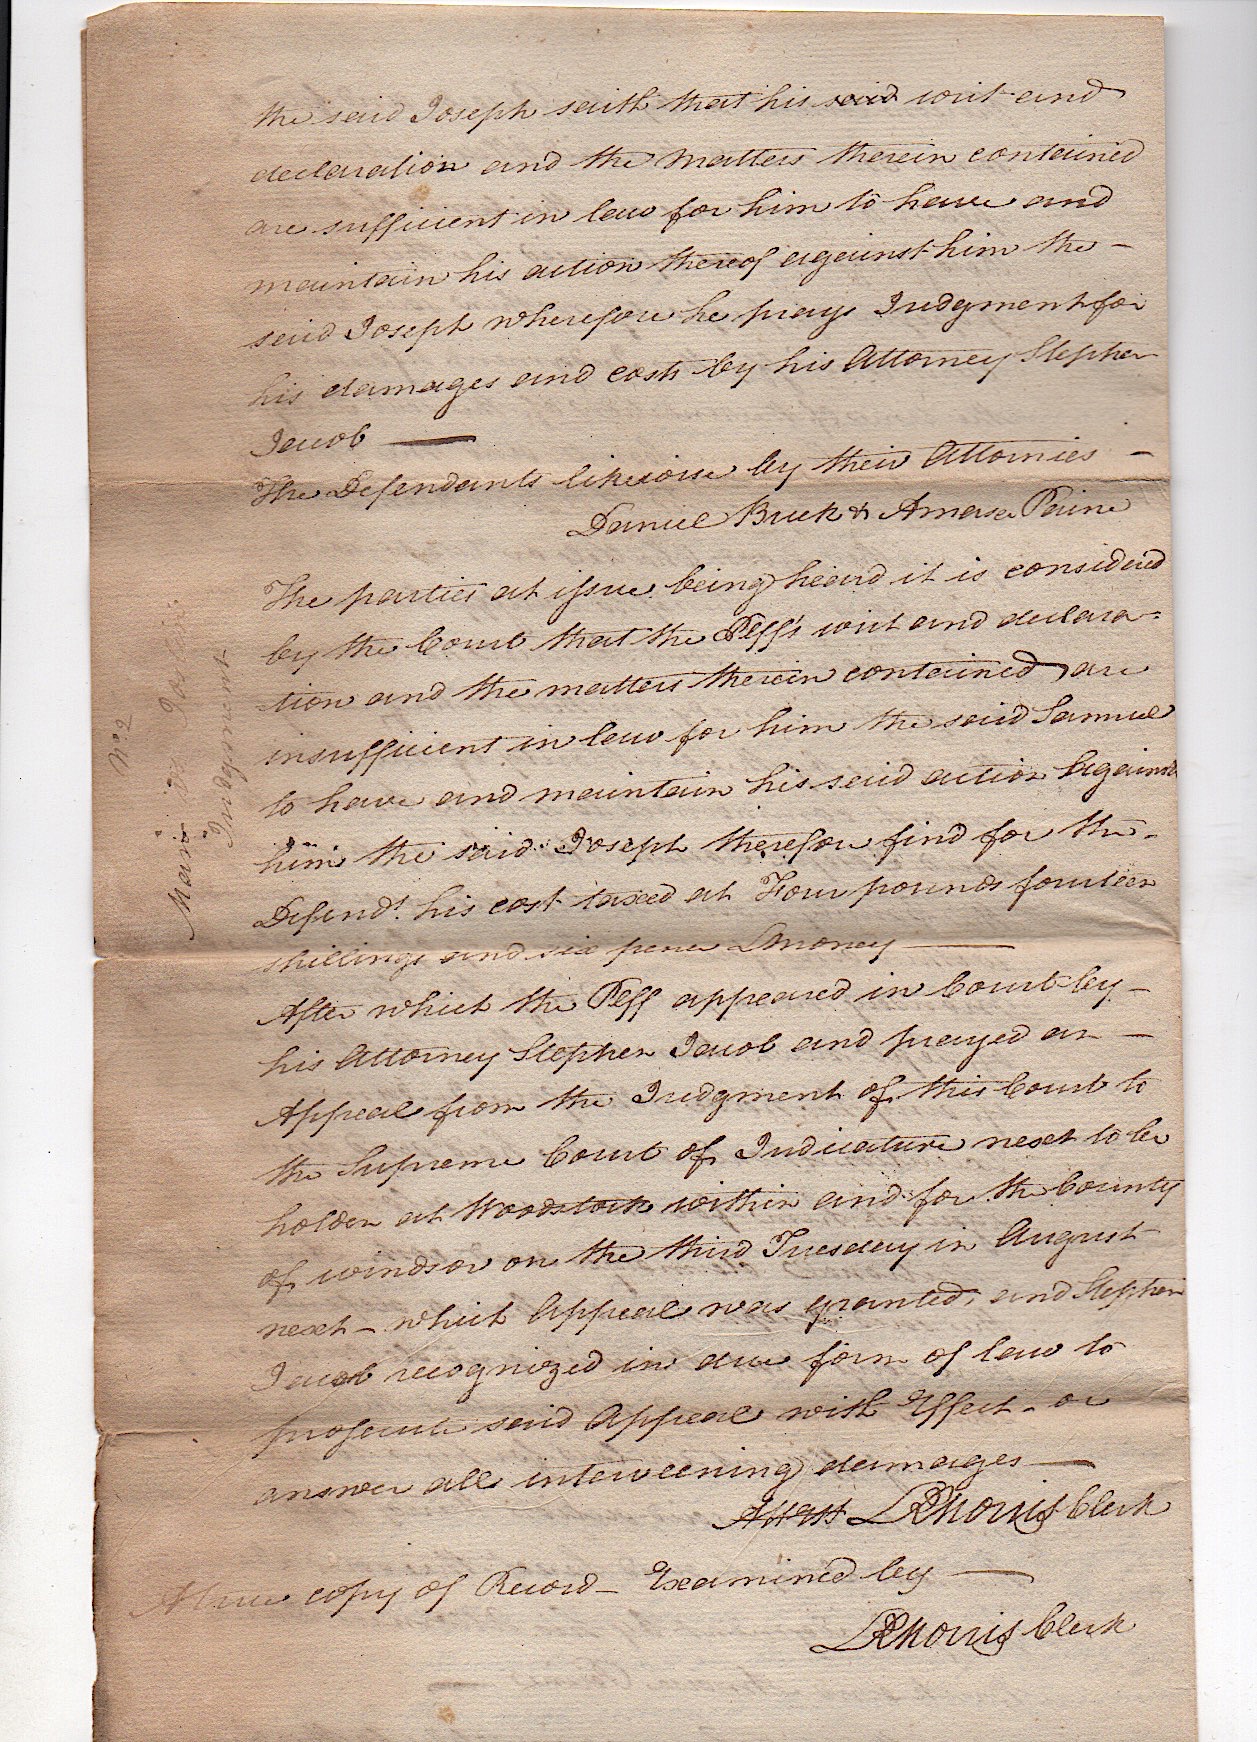 the said Joseph saith that his said writ and
declaration and the matters therein contained
are sufficient in law for him to have and
maintain his action thereof against him the –
said Joseph wherefore he prays Judgment for
his damages and costs by his Attorney Stephen
Jacob —
The Defendants likewise by their Attornies –
Daniel Buck & Amasa Paine
The parties at issue being heard it is considered
by the Court that the Plff's writ and declara-
tion and the matters therein contained are
insufficient in law for him the said Samuel
to have and maintain his said action against
him the said Joseph therefore find for the –
Defend.t his cost taxed at Four pounds fourteen
shillings and six pence Lmoney —
After which the Plff appeared in Court by –
his Attorney Stephen Jacob and prayed an –
Appeal from the Judgment of this Court to
the Supreme Court of Judicature next to be
holden at Woodstock within and for the County
of windsor on the third Tuesday in August
next – which Appeal was granted, and Stephen
Jacob recognized in due form of law to
prosecute said Appeal with Effect – or
answer all interveening damages —
Attest LRMorris Clerk
A true copy of Record – Examined by —
LRMorris Clerk
No 2
Judgment